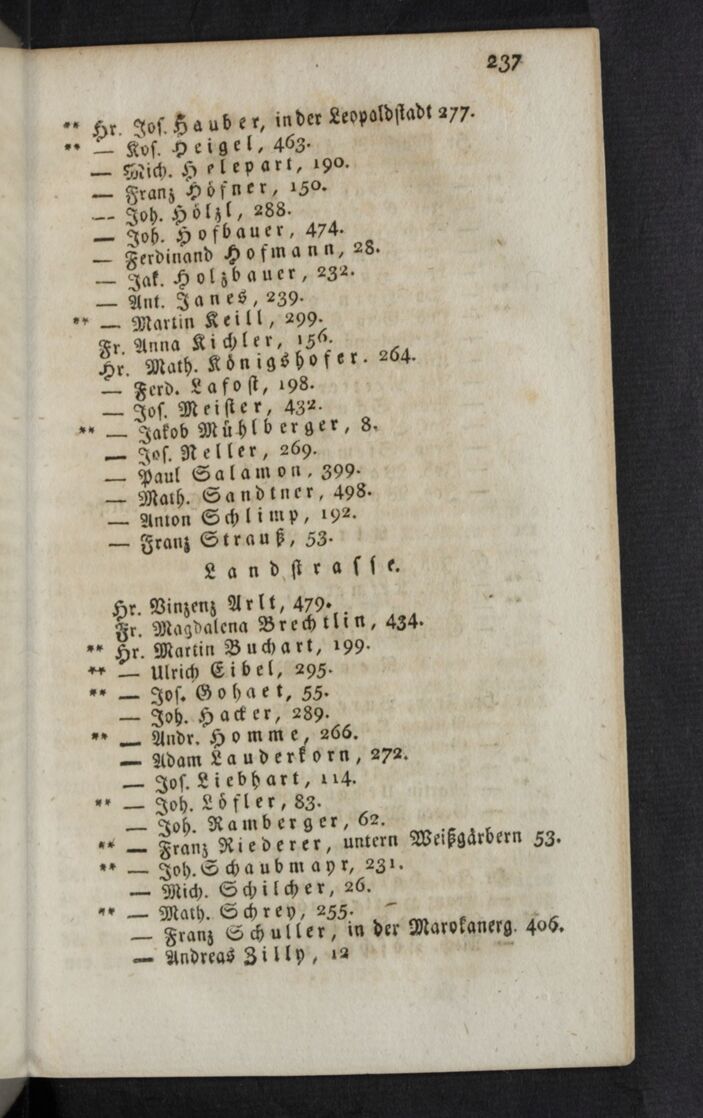 237
** Hr. Jos. Hauber, in der Leopoldstadt 277.
** — Kos. Heigel, 463.
— Mich. Helepart, 190.
— Franz Höfner, 150.
— Joh. Hölzl, 288.
— Joh. Hofbauer, 474.
— Ferdinand Hofmann, 28.
— Jak. Holzbauer, 232.
— Ant. Janes, 239.
** — Martin Keill, 299.
Fr. Anna Kichler, 156.
Hr. Math. Königshofer. 264.
— Ferd. Lafost, 198.
— Jos. Meister, 432.
** — Jakob Mühlberger, 8.
— Jos. Neller, 269.
— Paul Salamon, 399.
— Math. Sandtner, 498.
— Anton Schlimp, 192.
— Franz Strauß, 53.
Landstrasse.
Hr. Vinzenz Arlt, 479.
Fr. Magdalena Brechtlin, 434.
** Hr. Martin Buchart, 199.
** — Ulrich Eibel, 295.
** — Jos. Gohaet, 55.
— Joh. Hacker, 289.
** — Andr. Homme, 266.
— Adam Lauderkorn, 272.
— Jos. Liebhart, 114.
** — Joh. Löfler, 83.
— Joh. Ramberger, 62.
** — Franz Riederer, untern Weißgärbern 53.
** — Joh. Schaubmayr, 231.
— Mich. Schilcher, 26.
** — Math. Schrey, 255.
— Franz Schuller, in der Marokanerg. 406.
— Andreas Zilly, 12